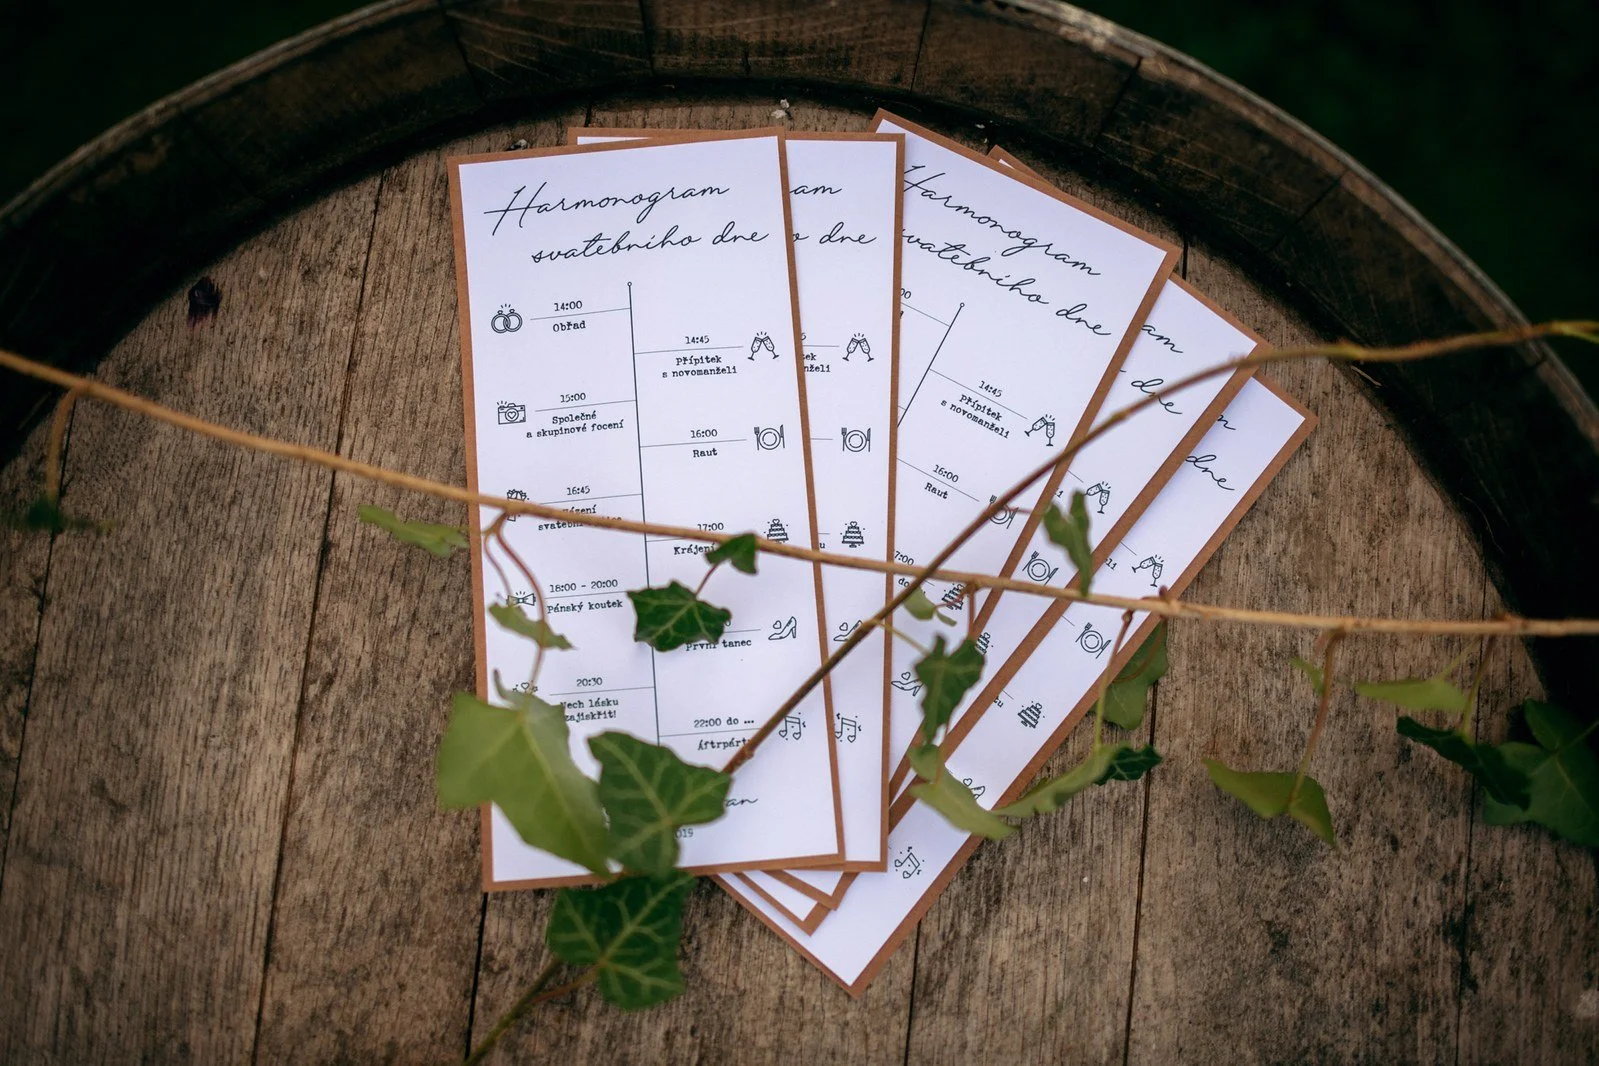 Harmonogram
svatebního dne
14:00
Obřad
14:45
Přípitek
s novomanželi
15:00
Společné
a skupinové focení
16:00
Raut
16:45
17:00
18:00 - 20:00
Pánský koutek
První tanec
20:30
Nech lásku
zajiskřit!
22:00 do ...
am
dne
Harmonogram
svatebního dne
14:45
Přípitek
s novomanželi
16:00
Raut
am
dne
dne